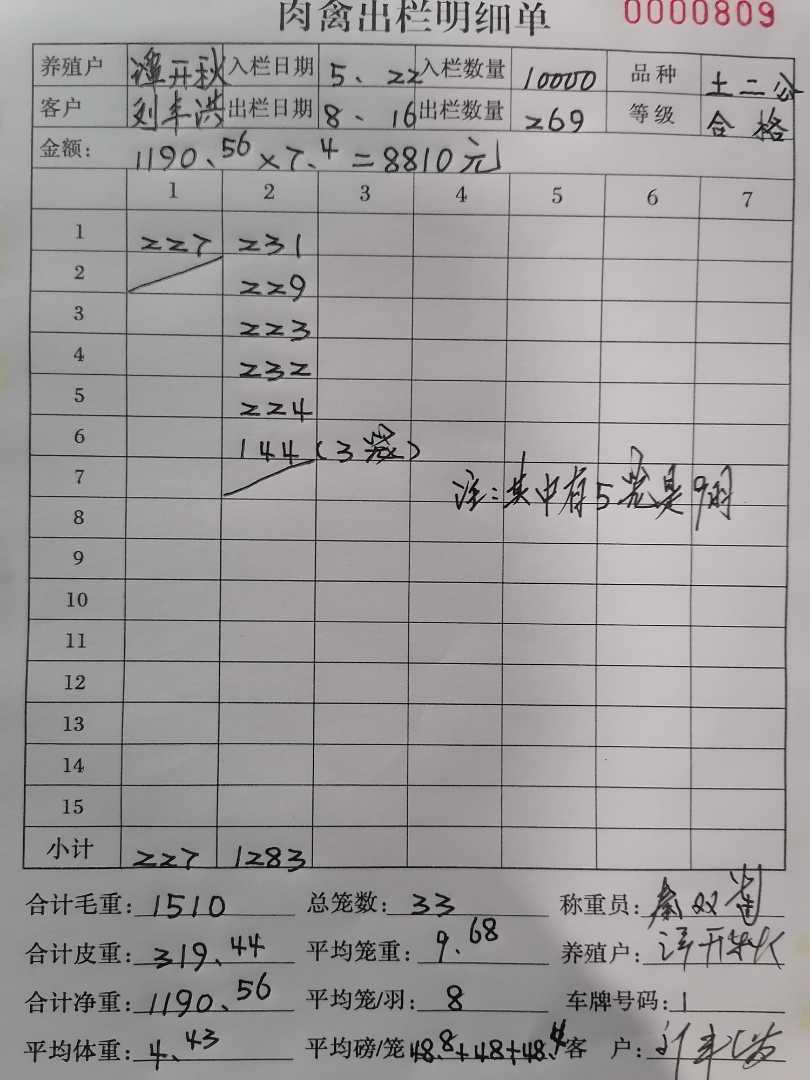 肉禽出栏明细单 0000809
养殖户 谭开秋 入栏日期 5、22 入栏数量 10000 品种 土二公
客户 刘丰洪 出栏日期 8、16 出栏数量 269 等级 合格
金额: 1190、56×7、4=8810元
1 2 3 4 5 6 7
1 227 231
2 229
3 223
4 232
5 224
6 144(3笼)
7 注:其中有5笼是9羽
8
9
10
11
12
13
14
15
小计 227 1283
合计毛重: 1510 总笼数: 33 称重员: 秦双
合计皮重: 319、44 平均笼重: 9.68 养殖户: 谭开秋
合计净重: 1190、56 平均笼/羽: 8 车牌号码: 1
平均体重: 4、43 平均磅/笼 48.8+48+48.4 客户: